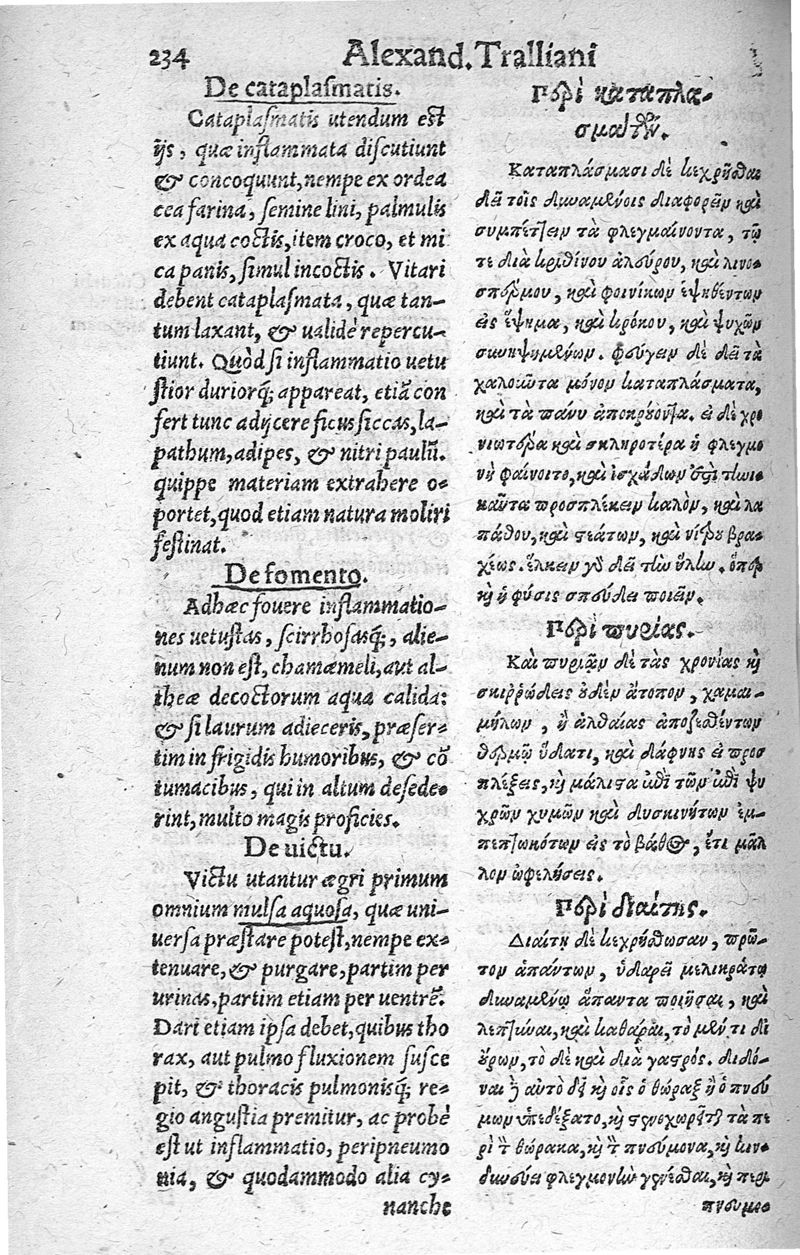 234 Alexand. Tralliani
De cataplasmatis.
Cataplasmatis utendum est
ijs, quæ inflammata discutiunt
& concoquunt, nempe ex ordea
cea farina, semine lini, palmulis
ex aqua coctis, item croco, et mi
ca panis, simul incoctis. Vitari
debent cataplasmata, quæ tan-
tum laxant, & ualidè repercu-
tiunt. Quòd si inflammatio uetu
stior duriorq́; appareat, etiã con
fert tunc adijcere ficus siccas, la-
pathum, adipes, & nitri paulũ.
quippe materiam extrahere o-
portet, quod etiam natura moliri
festinat.
De fomento.
Adhæc fouere inflammatio-
nes uetustas, scirrhosasq́;, alie-
num non est, chamæmeli, aut al-
theæ decoctorum aqua calida:
& si laurum adieceris, præser-
tim in frigidis humoribus, & cõ
tumacibus, qui in altum desede-
rint, multo magis proficies.
De uictu.
Victu utantur ægri primum
omnium mulsa aquosa, quæ uni-
uersa præstare potest, nempe ex-
tenuare, & purgare, partim per
urinas, partim etiam per uentrẽ.
Dari etiam ipsa debet, quibus tho
rax, aut pulmo fluxionem susce
pit, & thoracis pulmonisq́; re-
gio angustia premitur, ac probè
est ut inflammatio, peripneumo
nia, & quodammodo alia cy-
nanche
Περὶ καταπλα-
σμάτων.
Καταπλάσμασι δὲ κεχρῆσθαι
δεῖ τοῖς δυναμένοις διαφορεῖν καὶ
συμπέττειν τὰ φλεγμαίνοντα, τῷ
τε διὰ κριθίνου ἀλεύρου, καὶ λινο-
σπέρμου, καὶ φοινίκων ἑψηθέντων
εἰς ἕψημα, καὶ κρόκου, καὶ ψυχῶν
συνηψημένων. φεύγειν δὲ δεῖ τὰ
χαλῶντα μόνον καταπλάσματα,
καὶ τὰ πάνυ ἀποκρούοντα. εἰ δὲ χρο
νιωτέρα καὶ σκληροτέρα ἡ φλεγμο
νὴ φαίνοιτο, καὶ ἰσχάδων ἐπὶ τηνι
καῦτα προσπλέκειν καλὸν, καὶ λα
πάθου, καὶ στεάτων, καὶ νίτρου βρα
χέως. ἕλκειν γὰρ δεῖ τὴν ὕλην. ὅπερ
καὶ ἡ φύσις σπεύδει ποιεῖν.
Περὶ πυρίας.
Καὶ πυριᾶν δὲ τὰς χρονίας καὶ
σκιρρώδεις οὐδὲν ἄτοπον, χαμαι-
μήλων, ἢ ἀλθαίας ἀποζεσθέντων
θερμῷ ὕδατι, καὶ δάφνης εἰ προσ
πλέξεις, καὶ μάλιστα ἐπὶ τῶν ἐπὶ ψυ
χρῶν χυμῶν καὶ δυσκινήτων ἐμ-
πεπτωκότων εἰς τὸ βάθος, ἔτι μᾶλ
λον ὠφελήσεις.
Περὶ διαίτης.
Διαίτῃ δὲ κεχρήσθωσαν, πρῶ-
τον ἁπάντων, ὑδαρεῖ μελικράτῳ
δυναμένῳ ἅπαντα ποιῆσαι, καὶ
λεπτῦναι, καὶ καθᾶραι, τὸ μέν τι δι
οὔρων, τὸ δὲ καὶ διὰ γαστρός. διδό-
ναι δὲ αὐτὸ δεῖ καὶ οἷς ὁ θώραξ ἢ ὁ πνεύ
μων ὑπεδέξατο, καὶ στενοχωρεῖται τὰ πε
ρὶ τὸν θώρακα, καὶ τὸν πνεύμονα, καὶ κιν-
δυνεύει φλεγμονὴν γενέσθαι, καὶ περι
πνευμο-